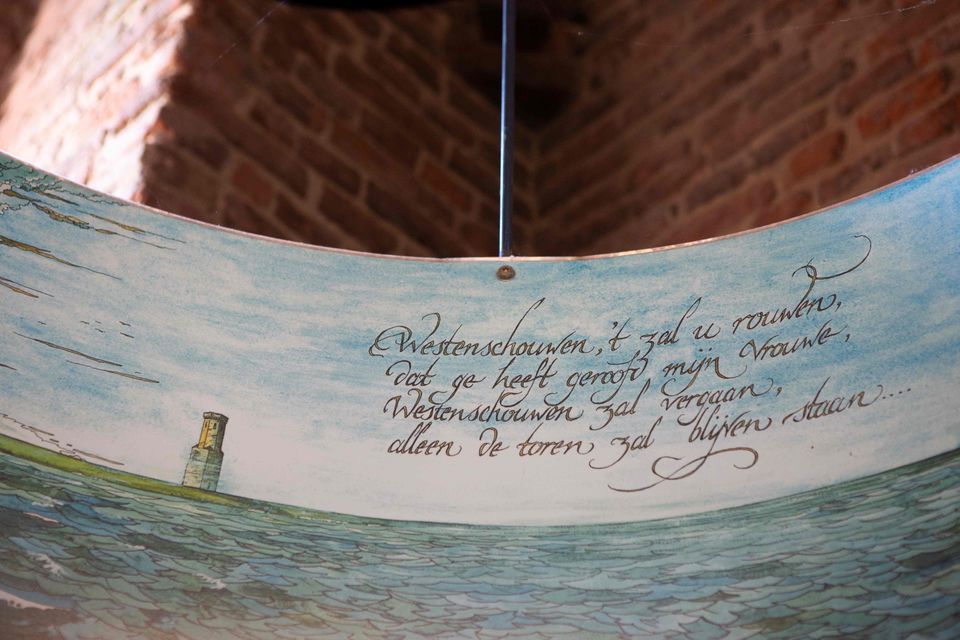 Westenschouwen, 't zal u rouwen,
dat ge heeft geroofd mijn vrouwe,
Westenschouwen zal vergaan,
alleen de toren zal blijven staan....